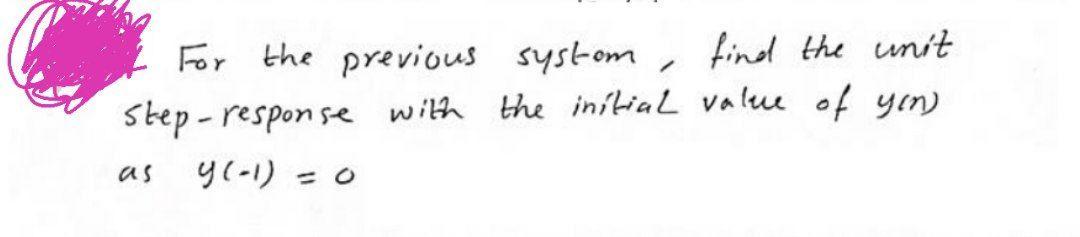 For the previous system, find the unit
step-response with the initial value of y(n)
as y(-1) = 0